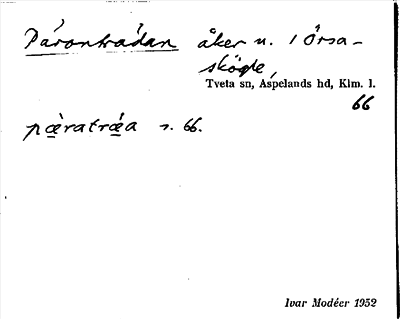 Páronträdan åker n. i Örsa-
skögle,
Tveta sn, Aspelands hd, Klm. l.
66
pæ̀ratræ̀a s. 66.
Ivar Modéer 1952